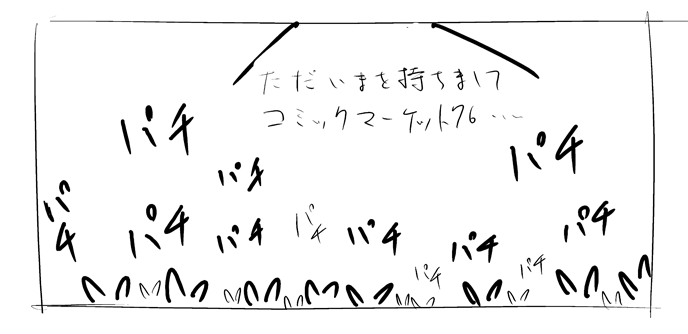 ただいまを持ちまして
コミックマーケット76…
パチ
パチ
パチ
パチ
パチ
パチ
パチ
パチ
パチ
パチ
パチ
パチ